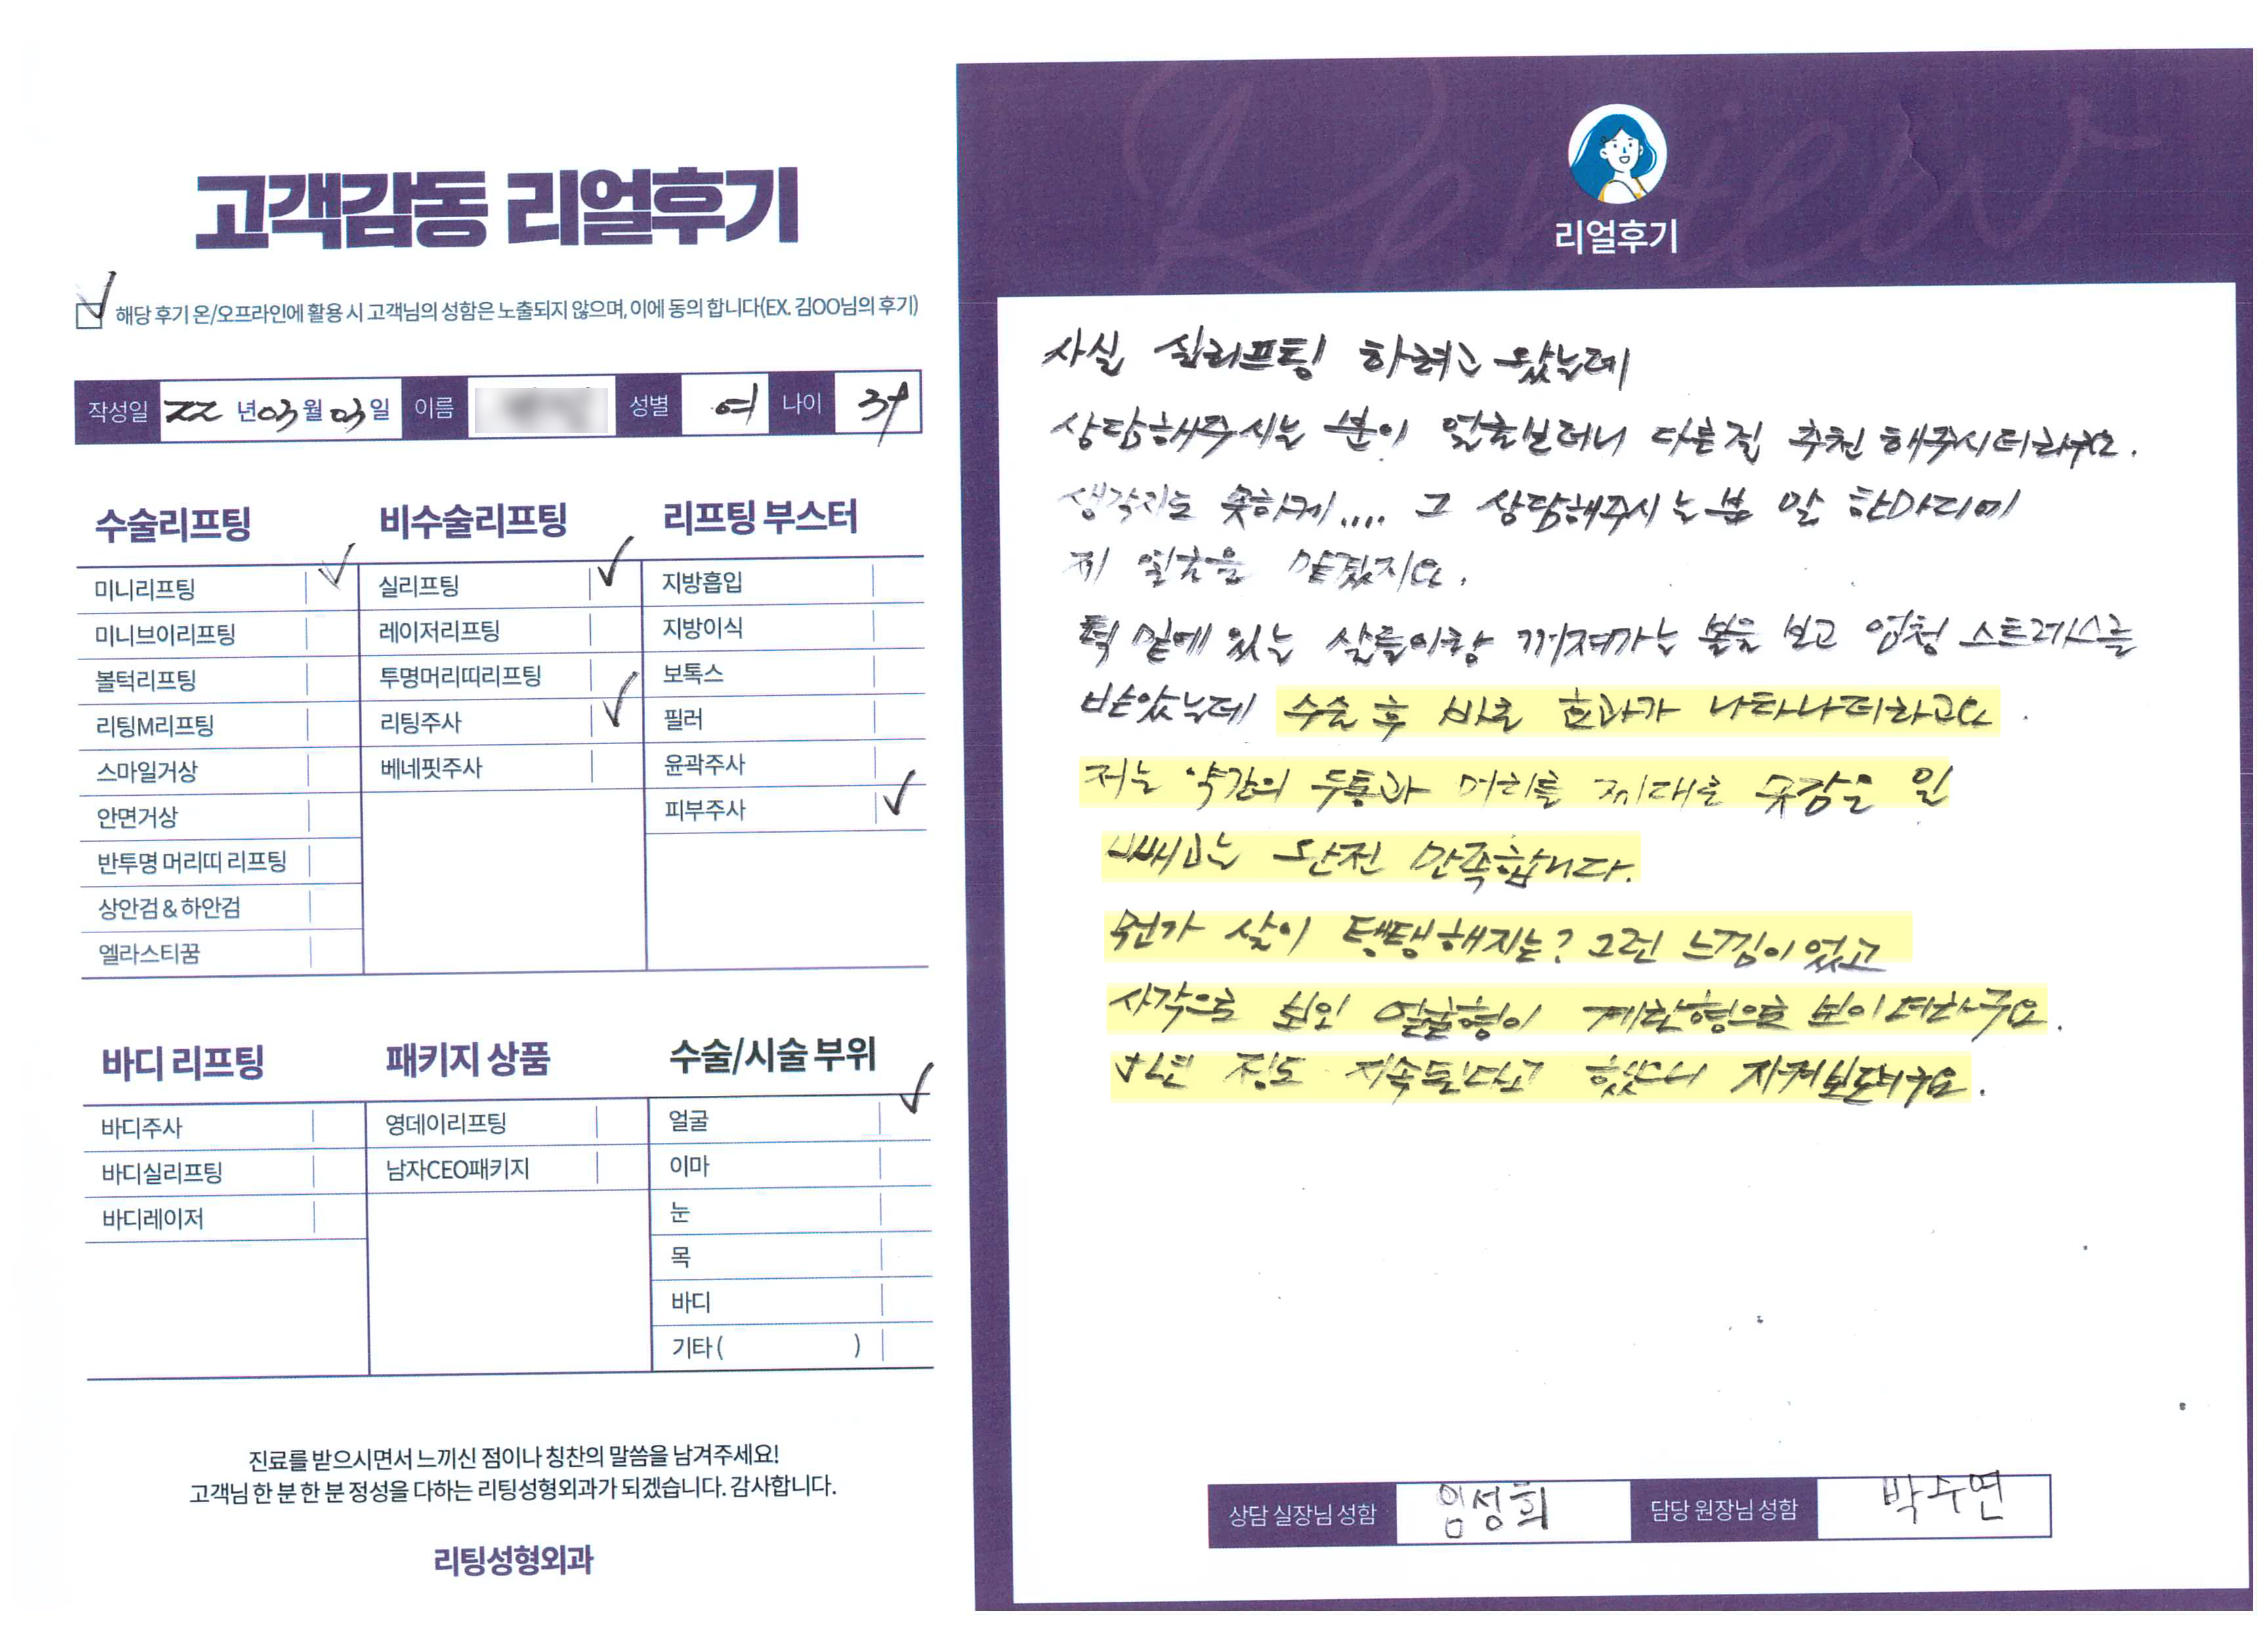 고객감동 리얼후기
해당 후기 온/오프라인에 활용 시 고객님의 성함은 노출되지 않으며, 이에 동의 합니다(EX. 김OO님의 후기)
작성일 22 년 03 월 03 일 이름 성별 여 나이
수술리프팅
미니리프팅
미니브이리프팅
볼턱리프팅
리팅M리프팅
스마일거상
안면거상
반투명 머리띠 리프팅
상안검 & 하안검
엘라스티꿈
비수술리프팅
실리프팅
레이저리프팅
투명머리띠리프팅
리팅주사
베네핏주사
리프팅 부스터
지방흡입
지방이식
보톡스
필러
윤곽주사
피부주사
바디 리프팅
바디주사
바디실리프팅
바디레이저
패키지 상품
영데이리프팅
남자CEO패키지
수술/시술 부위
얼굴
이마
눈
목
바디
기타 ( )
진료를 받으시면서 느끼신 점이나 칭찬의 말씀을 남겨주세요!
고객님 한 분 한 분 정성을 다하는 리팅성형외과가 되겠습니다. 감사합니다.
리팅성형외과
Review
리얼후기
사실 실리프팅 하려고 왔는데
상담해주시는 분이 얼굴보더니 다른걸 추천 해주시더라구요.
생각지도 못하게.... 그 상담해주시는분 말 한마디에
제 얼굴을 맡겼지요.
턱 밑에 있는 살들이랑 꺼져가는 볼을 보고 엄청 스트레스를
받았는데 수술 후 바로 효과가 나타나더라고요.
저는 약간의 두통과 머리를 제대로 못감은 일
빼고는 완전 만족합니다.
뭔가 살이 탱탱해지는? 그런 느낌이 었고
사각으로 보인 얼굴형이 계란형으로 보이더라구요.
정도 지속된다고 했으니 지켜보려구요.
상담 실장님 성함 임성희 담당 원장님 성함 박수연